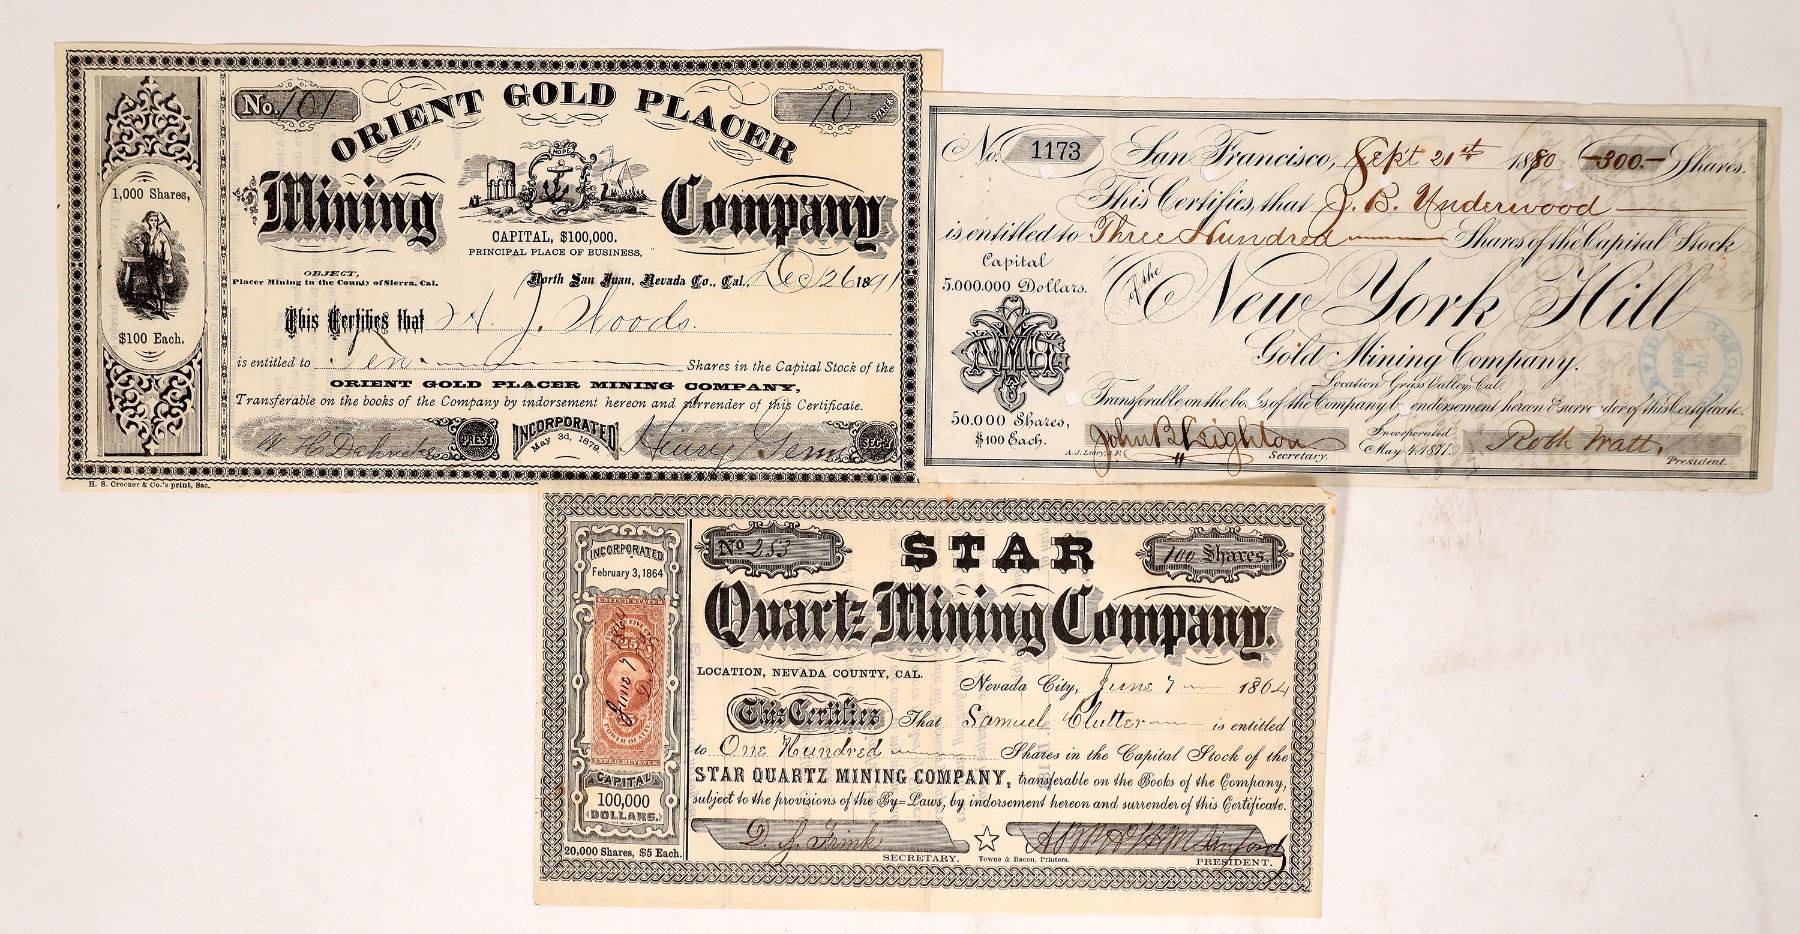 No. 101
ORIENT GOLD PLACER
10 SHARES
HOPE
Mining Company
1,000 Shares,
$100 Each.
CAPITAL, $100,000.
PRINCIPAL PLACE OF BUSINESS,
OBJECT,
Placer Mining in the County of Sierra, Cal.
North San Juan, Nevada Co., Cal., Dec 26 1891
This Certifies that H. J. Woods.
is entitled to Ten Shares in the Capital Stock of the
ORIENT GOLD PLACER MINING COMPANY,
Transferable on the books of the Company by indorsement hereon and surrender of this Certificate.
W H PREST
INCORPORATED
May 3d, 1879.
Henry SECY
H. S. Crocker & Co.'s print, Sac.
No. 1173 San Francisco, Sept 21st 1880 -300.- Shares.
This Certifies, that J. B. Underwood
is entitled to Three Hundred Shares of the Capital Stock
Capital
5.000.000 Dollars.
of the
New York Hill
Gold Mining Company.
Location Grass Valley, Cal.
Transferable on the books of the Company by endorsement hereon & surrender of this Certificate.
50.000 Shares,
$100 Each.
John B Leighton
Secretary.
A.J. Leary, S.F.
Incorporated
May 4, 1877.
Rott Watt.
President.
No 253
STAR
100 Shares
Quartz Mining Company.
INCORPORATED
February 3, 1864
UNITED STATES
25
June 7 1864
POWER OF ATT'Y
INTER. REVENUE
CAPITAL
100,000
DOLLARS.
20,000 Shares, $5 Each.
LOCATION, NEVADA COUNTY, CAL.
Nevada City, June 7 1864
This Certifies That Samuel Clutter is entitled
to One Hundred Shares in the Capital Stock of the
STAR QUARTZ MINING COMPANY, transferable on the Books of the Company,
subject to the provisions of the By=Laws, by indorsement hereon and surrender of this Certificate.
D. G. Frink
SECRETARY.
Towne & Bacon, Printers.
PRESIDENT.